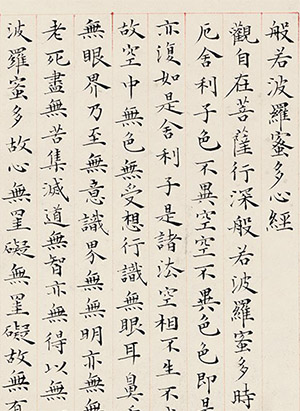 般若波羅蜜多心經
觀自在菩薩行深般若波羅蜜多時
厄舍利子色不異空空不異色色即是
亦復如是舍利子是諸法空相不生不
故空中無色無受想行識無眼耳鼻
無眼界乃至無意識界無無明亦無
老死盡無苦集滅道無智亦無得以無
波羅蜜多故心無罣礙無罣礙故無有